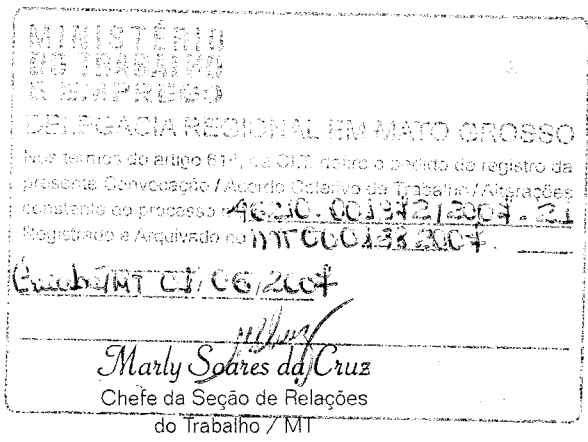 MINISTÉRIO
DO TRABALHO
E EMPREGO
DELEGACIA REGIONAL EM MATO GROSSO
Nos termos do artigo 614, da CLT, defiro o pedido de registro da
presente Convocação / Acordo Coletivo de Trabalho / Alterações
constante do processo nº 46210.001372/2007-21
Registrado e Arquivado no MT000133 2007.
Cuiabá/MT 01/06/2007
Marly Soares da Cruz
Chefe da Seção de Relações
do Trabalho / MT